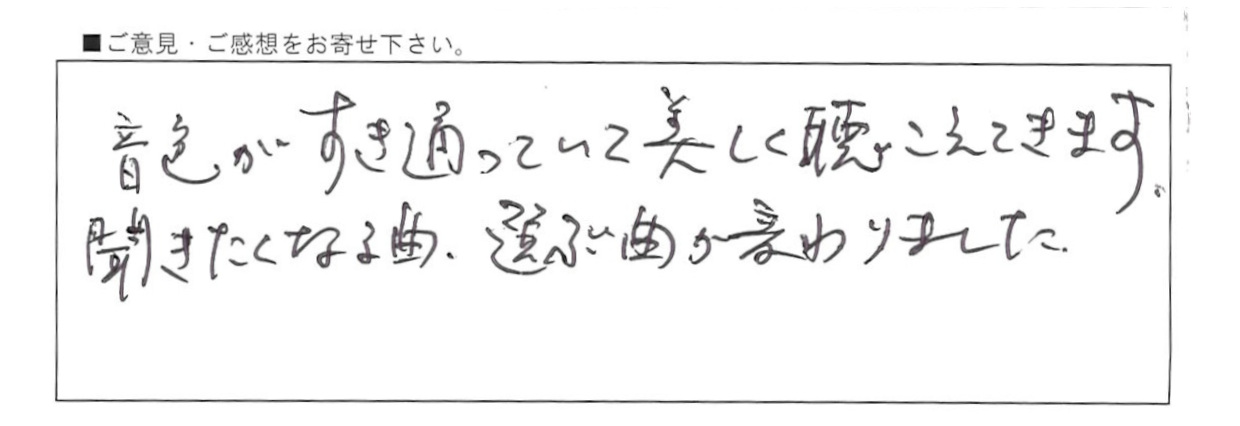 ■ご意見・ご感想をお寄せ下さい。
音色がすき通っていて美しく聴こえてきます。
聞きたくなる曲、選ぶ曲が変わりました。